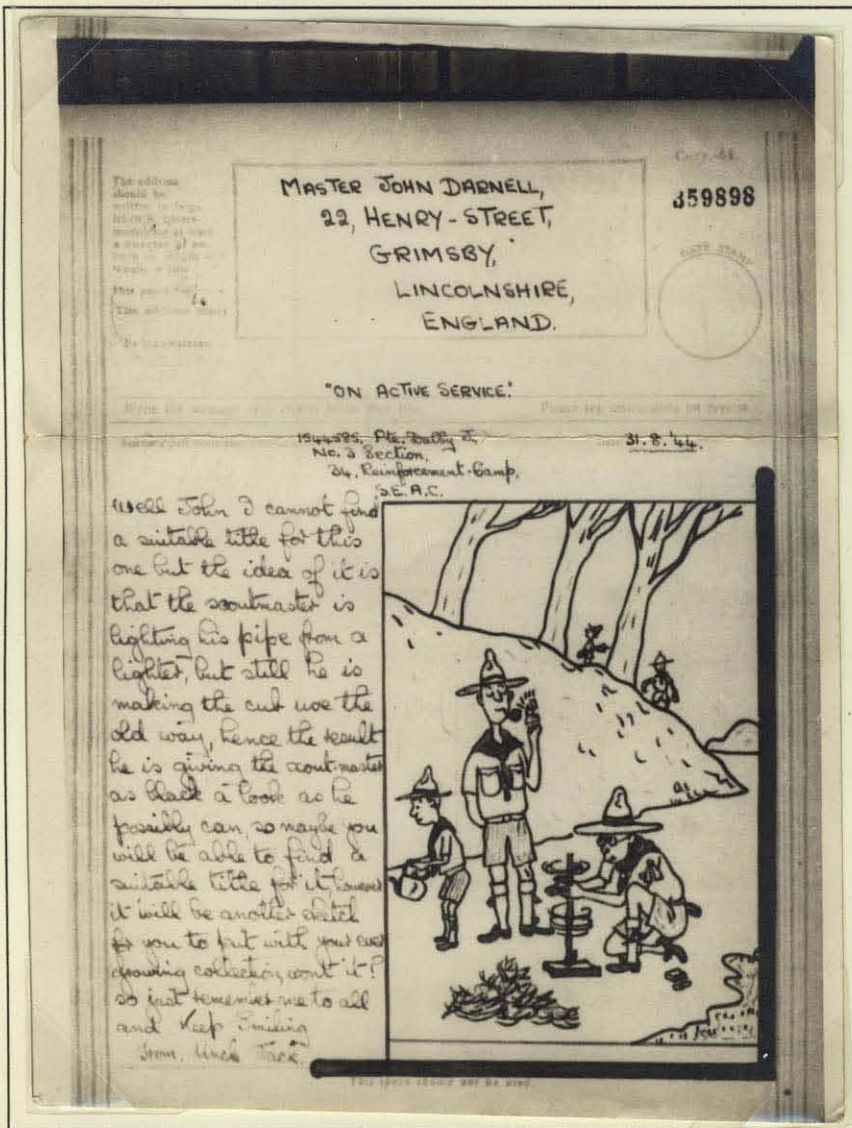 The address
should be
written in large
Copy. 61
MASTER JOHN DARNELL,
22, HENRY-STREET,
GRIMSBY,
LINCOLNSHIRE,
ENGLAND.
359898
DATE STAMP
"ON ACTIVE SERVICE."
Please
1544585. Pte. J,
No. 3 Section,
34, Reinforcement-Camp,
S.E.A.C.
31.8.'44.
Well John I cannot find
a suitable title for this
one but the idea of it is
that the scoutmaster is
lighting his pipe from a
lighter, but still he is
making the cub use the
old way, hence the result
he is giving the scout-master
as black a look as he
possibly can, so maybe you
will be able to find a
suitable title for it, however
it will be another sketch
for you to put with your ever
growing collection, wont it?
so just remember me to all
and Keep Smiling
From. Uncle Jack.
This space should not be used